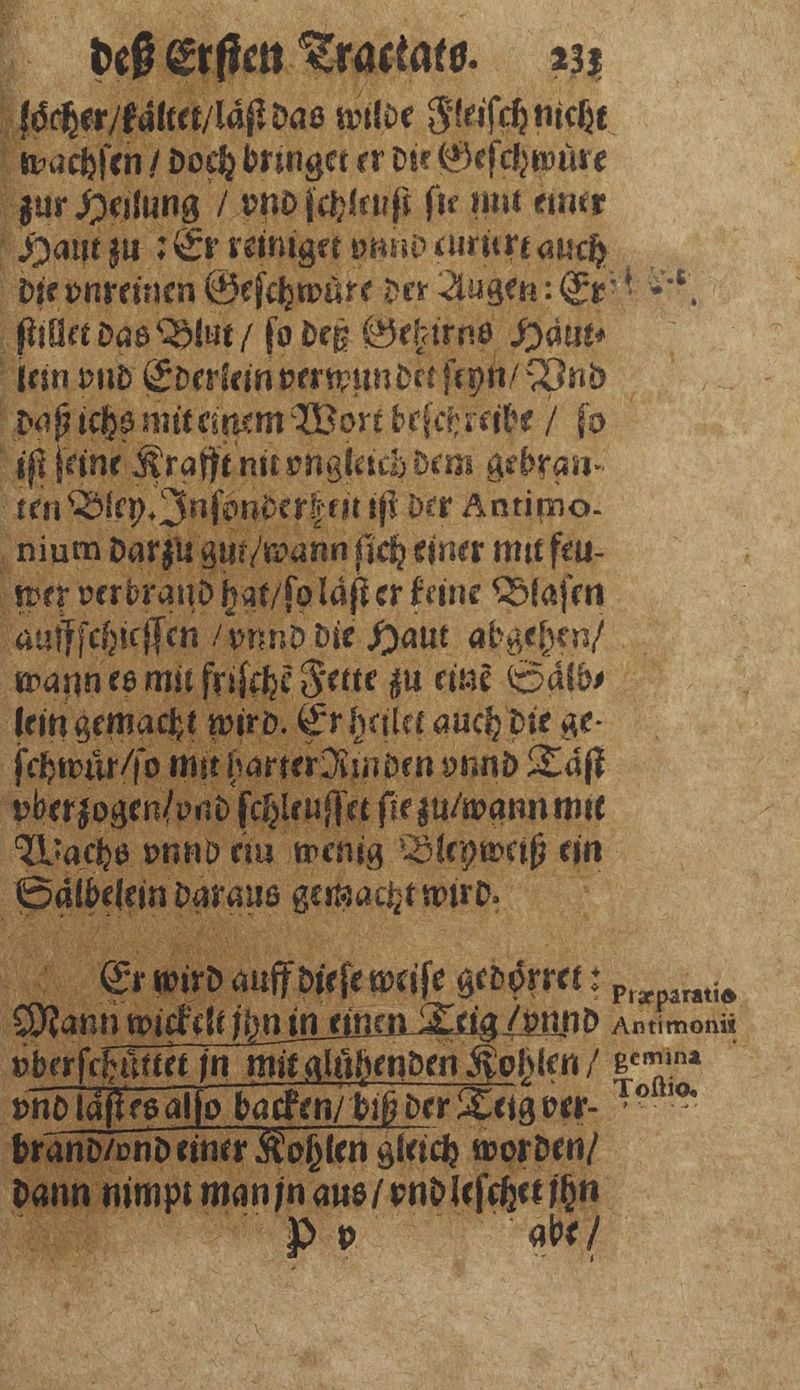 deß Ersten Tractats. 233
löcher/kältet/läst das wilde Fleisch nicht
wachsen / doch bringet er die Geschwüre
zur Heilung / vnd schleust sie mit einer
Haut zu : Er reiniget vnnd curiert auch
die vnreinen Geschwüre der Augen: Er
stillet das Blut / so deß Gehirns Häut-
lein vnd Ederlein verwundet seyn/ Vnd
daß ichs mit einem Wort beschreibe / so
ist seine Krafft nit vngleich dem gebran-
ten Bley. Insonderheit ist der Antimo-
nium darzu gut/wann sich einer mit feu-
wer verbrand hat/so läst er keine Blasen
auffschiessen / vnnd die Haut abgehen/
wann es mit frischē Fette zu einē Sälb-
lein gemacht wird. Er heilet auch die ge-
schwür/so mit harter Rinden vnnd Täst
vberzogen/vnd schleusset sie zu/wann mit
Wachs vnnd ein wenig Bleyweiß ein
Sälbelein daraus gemacht wird.
Er wird auff diese weise gedörret :
Mann wickelt jhn in einen Teig / vnnd
vberschüttet jn mit glühenden Kohlen /
vnd läst es also backen/ biß der Teig ver-
brand/vnd einer Kohlen gleich worden/
dann nimpt man jn aus / vnd leschet jhn
P v abe /
Præparatio
Antimonii
gemina
Tostio.